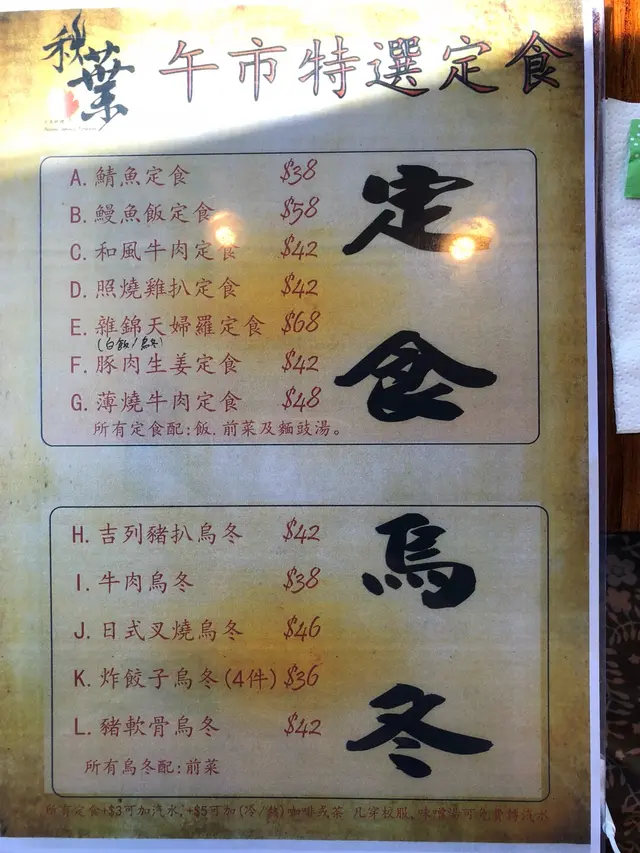 秋葉
午市特選定食
定食
A. 鯖魚定食 $38
B. 鰻魚飯定食 $58
C. 和風牛肉定食 $42
D. 照燒雞扒定食 $42
E. 雜錦天婦羅定食 $68
(白飯/烏冬)
F. 豚肉生姜定食 $42
G. 薄燒牛肉定食 $48
所有定食配:飯. 前菜及麵豉湯。
烏冬
H. 吉列豬扒烏冬 $42
I. 牛肉烏冬 $38
J. 日式叉燒烏冬 $46
K. 炸餃子烏冬(4件) $36
L. 豬軟骨烏冬 $42
所有烏冬配:前菜
所有定食+$3可加汽水, +$5可加(冷/熱)咖啡或茶 凡穿校服,味噌湯可免費轉汽水